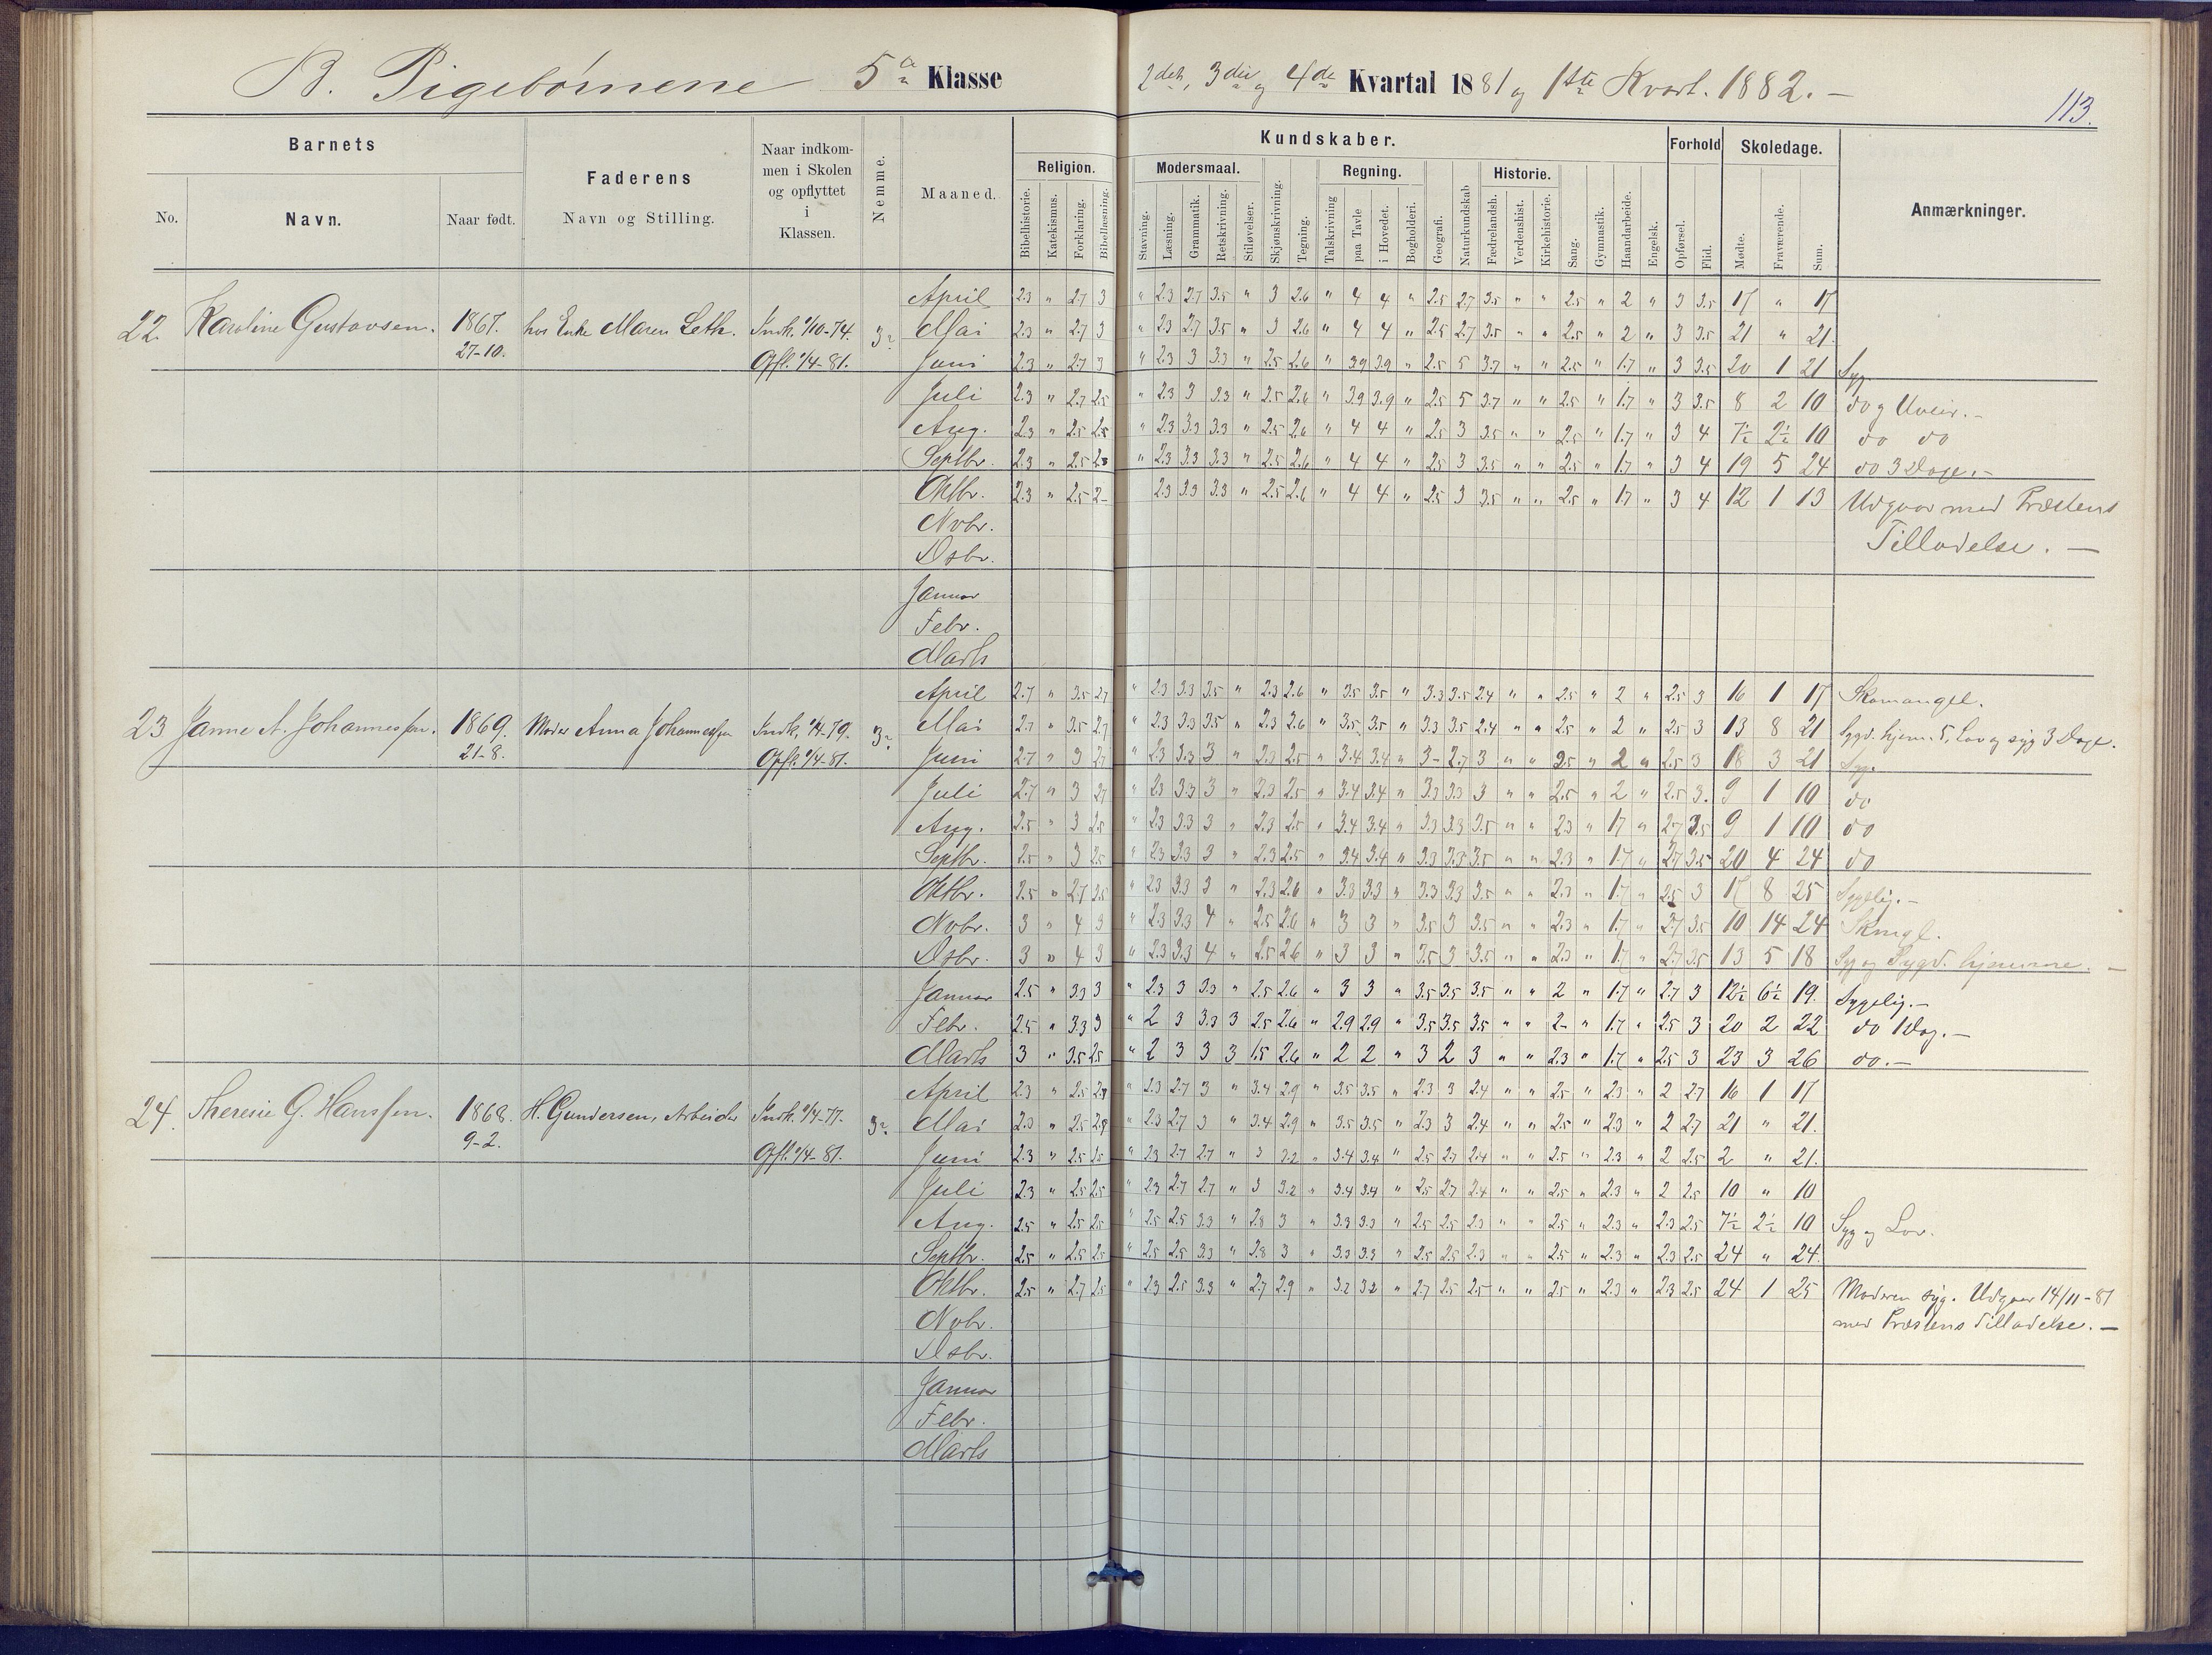 B. Pigebörnene 5te Klasse 2det, 3die og 4de Kvartal 1881 og 1ste Kvart. 1882. —
113.
Barnets
Faderens
Naar indkommen i Skolen og opflyttet i Klassen.
Nemme.
Maaned.
Kundskaber.
Forhold
Skoledage.
Anmærkninger.
Religion.
Modersmaal.
Regning.
Historie.
No.
Navn.
Naar født.
Navn og Stilling.
Bibelhistorie.
Katekismus.
Forklaring.
Bibellæsning.
Stavning.
Læsning.
Grammatik.
Retskrivning.
Stiløvelser.
Skjønskrivning.
Tegning.
Talskrivning
paa Tavle
i Hovedet.
Bogholderi.
Geografi.
Naturkundskab
Fædrelandsh.
Verdenshist.
Kirkehistorie.
Sang.
Gymnastik.
Haandarbeide.
Engelsk.
Opførsel.
Flid.
Mødte.
Fraværende.
Sum.
22. Karoline Gustavsen. 1867. 27-10. hos Enke Maren Leth. Indk. 1/10-74. Opfl. 1/4-81.
April 2.3 " 2.7 3 " 2.3 2.7 3.5 " 3 2.6 " 4 4 " 2.5 2.7 3.5 " " 2.5 " 2 " 3 3.5 17 " 17
Mai 2.3 " 2.7 3 " 2.3 2.7 3.5 " 3 2.6 " 4 4 " 2.5 2.7 3.5 " " 2.5 " 2 " 3 3.5 21 " 21.
Juni 2.3 " 2.7 3 " 2.3 3 3.3 " 2.5 2.6 " 3.9 3.9 " 2.5 5 3.7 " " 2.5 " 1.7 " 3 3.5 20 1 21 Syg
Juli 2.3 " 2.7 2.5 " 2.3 3 3.3 " 2.5 2.6 " 3.9 3.9 " 2.5 5 3.7 " " 2.5 " 1.7 " 3 3.5 8 2 10 do og Uveir. -
Aug. 2.3 " 2.5 2.5 " 2.3 3.3 3.3 " 2.5 2.6 " 4 4 " 2.5 3 3.5 " " 2.5 " 1.7 " 3 4 7½ 2½ 10 do do
Septbr. 2.3 " 2.5 2.3 " 2.3 3.3 3.3 " 2.5 2.6 " 4 4 " 2.5 3 3.5 " " 2.5 " 1.7 " 3 4 19 5 24 do 3 Dage. -
Oktbr. 2.3 " 2.5 2- 2.3 3.3 3.3 " 2.5 2.6 " 4 4 " 2.5 3 3.5 " " 2.5 " 1.7 " 3 4 12 1 13 Udgaar med Præstens
Novbr. Tilladelse. —
Dsbr.
Januar
Febr.
Marts
23 Janne A. Johannessen. 1869. 21-8. Moder Anna Johannessen Indk. 1/4-79. Opfl. 1/4-81.
April 2.7 " 3.5 2.7 " 2.3 3.3 3.5 " 2.3 2.6 " 3.5 3.5 " 3.3 3.5 2.4 " " 2.5 " 2 " 2.5 3 16 1 17 Skomangel.
Mai 2.7 " 3.5 2.7 " 2.3 3.3 3.5 " 2.3 2.6 " 3.5 3.5 " 3.3 3.5 2.4 " " 2.5 " 2 " 2.5 3 13 8 21 Sygd. hjem. 5, Lov og syg 3 Dage.
Juni 2.7 " 3 2.7 " 2.3 3.3 3 " 2.3 2.5 " 3.4 3.4 " 3- 2.7 3 " " 2.5 " 2 " 2.5 3 18 3 21 Syg.
Juli 2.7 " 3 2.7 " 2.3 3.3 3 " 2.3 2.5 " 3.4 3.4 " 3.3 3.3 3 " " 2.5 " 2 " 2.5 3. 9 1 10 do
Aug. 2.5 " 3 2.5 " 2.3 3.3 3 " 2.3 2.5 " 3.4 3.4 " 3.3 3.3 3.5 " " 2.3 " 1.7 " 2.7 3.5 9 1 10 do
Septbr. 2.5 " 3 2.5 " 2.3 3.3 3 " 2.3 2.5 " 3.4 3.4 " 3.3 3.3 3.5 " " 2.3 " 1.7 " 2.7 3.5 20 4 24 do
Oktbr. 2.5 " 2.7 2.5 " 2.3 3.3 3 " 2.3 2.6 " 3.3 3.3 " 3.3 3.3 3.5 " " 2.3 " 1.7 " 2.5 3 17 8 25 Sygelig. -
Novbr. 3 " 4 3 " 2.3 3.3 4 " 2.5 2.6 " 3 3 " 3.5 3 3.5 " " 2.3 " 1.7 " 2.7 3.5 10 14 24
Dsbr. 3 " 4 3 " 2.3 3.3 4 " 2.5 2.6 " 3 3 " 3.5 3 3.5 " " 2.3 " 1.7 " 2.7 3.5 13 5 18 Syg og Sygd. hjemme. -
Januar 2.5 " 3.3 3 " 2.3 3 3.3 " 2.5 2.6 " 3 3 " 3.5 3.5 3.5 " " 2 " 1.7 " 2.7 3 12½ 6½ 19. Sygelig. -
Febr. 2.5 " 3.3 3 " 2 3 3.3 3 2.5 2.6 " 2.9 2.9 " 3.5 3.5 3.5 " " 2- " 1.7 " 2.5 3 20 2 22 do 1 Dag. -
Marts 3 " 3.5 2.5 " 2 3 3 3 1.5 2.6 " 2 2 " 3 2 3 " " 2.3 " 1.7 " 2.5 3 23 3 26 do. -
24. Theresie G. Hanssen. 1868. 9-2. H. Gundersen, Arbeider Indk. 1/4-77. Opfl. 1/4-81.
April 2.3 " 2.5 2.9 " 2.3 2.7 3 " 3.4 2.9 " 3.5 3.5 " 2.3 3 2.4 " " 2.5 " 2.3 " 2 2.7 16 1 17
Mai 2.3 " 2.5 2.9 " 2.3 2.7 3 " 3.4 2.9 " 3.5 3.5 " 2.3 3 2.4 " " 2.5 " 2.3 " 2 2.7 21 " 21.
Juni 2.3 " 2.5 2.5 " 2.3 2.7 2.7 " 3 3.2 " 3.4 3.4 " 2.5 2.7 2.4 " " 2.5 " 2.3 " 2 2.5 2 " 21.
Juli 2.3 " 2.5 2.5 " 2.3 2.7 2.7 " 3 3.2 " 3.4 3.4 " 2.5 2.7 2.4 " " 2.5 " 2.3 " 2 2.5 10 " 10
Aug. 2.5 " 2.5 2.5 " 2.5 2.5 3.3 " 2.8 3 " 3.3 3.3 " 2.5 2.5 2.3 " " 2.5 " 2.3 " 2.3 2.5 7½ 2½ 10 Syg og Lov.
Septbr. 2.5 " 2.5 2.5 " 2.5 2.5 3.3 " 2.8 3 " 3.3 3.3 " 2.5 2.5 2.3 " " 2.5 " 2.3 " 2.3 2.5 24 " 24.
Oktbr. 2.5 " 2.7 2.5 " 2.3 2.5 3.3 " 2.7 2.9 " 3.2 3.2 " 2.7 2.5 2.5 " " 2.5 " 2.3 " 2.3 2.5 24 1 25 Moderen syg. Udgaar 14/11-81
Novbr. med Præstens Tilladelse. —
Dsbr.
Januar
Febr.
Marts